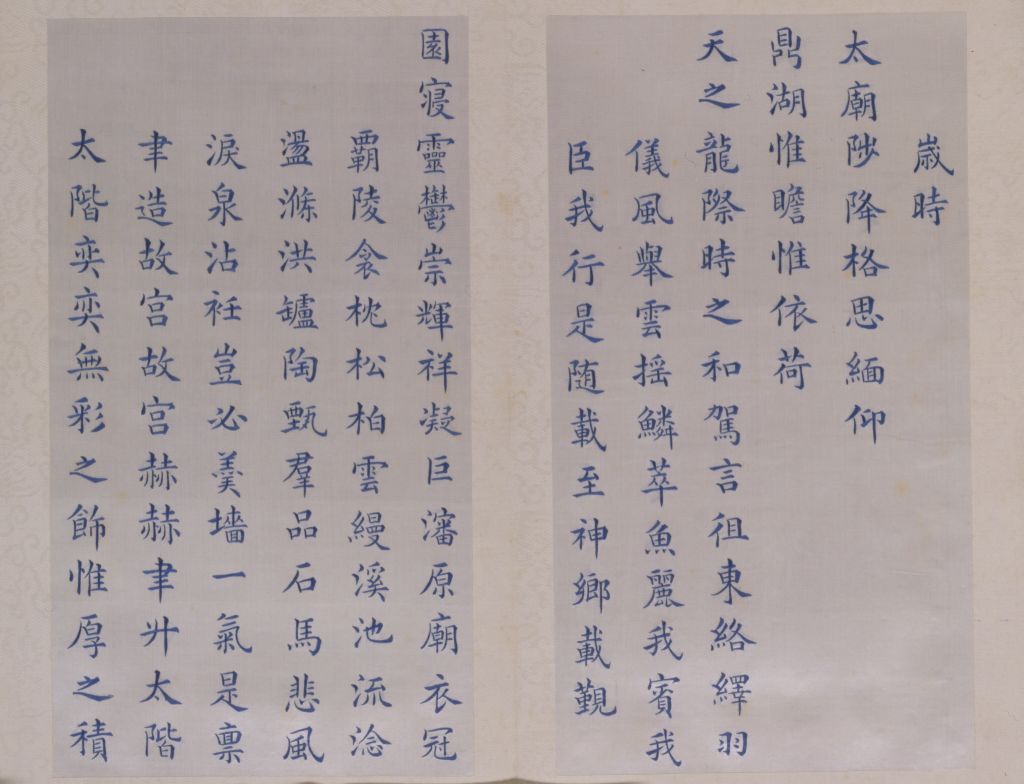 歳時
太廟陟降格思緬仰
鼎湖惟瞻惟依荷
天之龍際時之和駕言徂東絡繹羽
儀風舉雲搖鱗萃魚麗我賓我
臣我行是随載至神鄉載覲
園寢靈鬱崇輝祥凝巨瀋原廟衣冠
覇陵衾枕松柏雲縵溪池流淰
盪滌洪鑪陶甄羣品石馬悲風
淚泉沾袵豈必羹墻一氣是稟
聿造故宫故宫赫赫聿升太階
太階奕奕無彩之飾惟厚之積